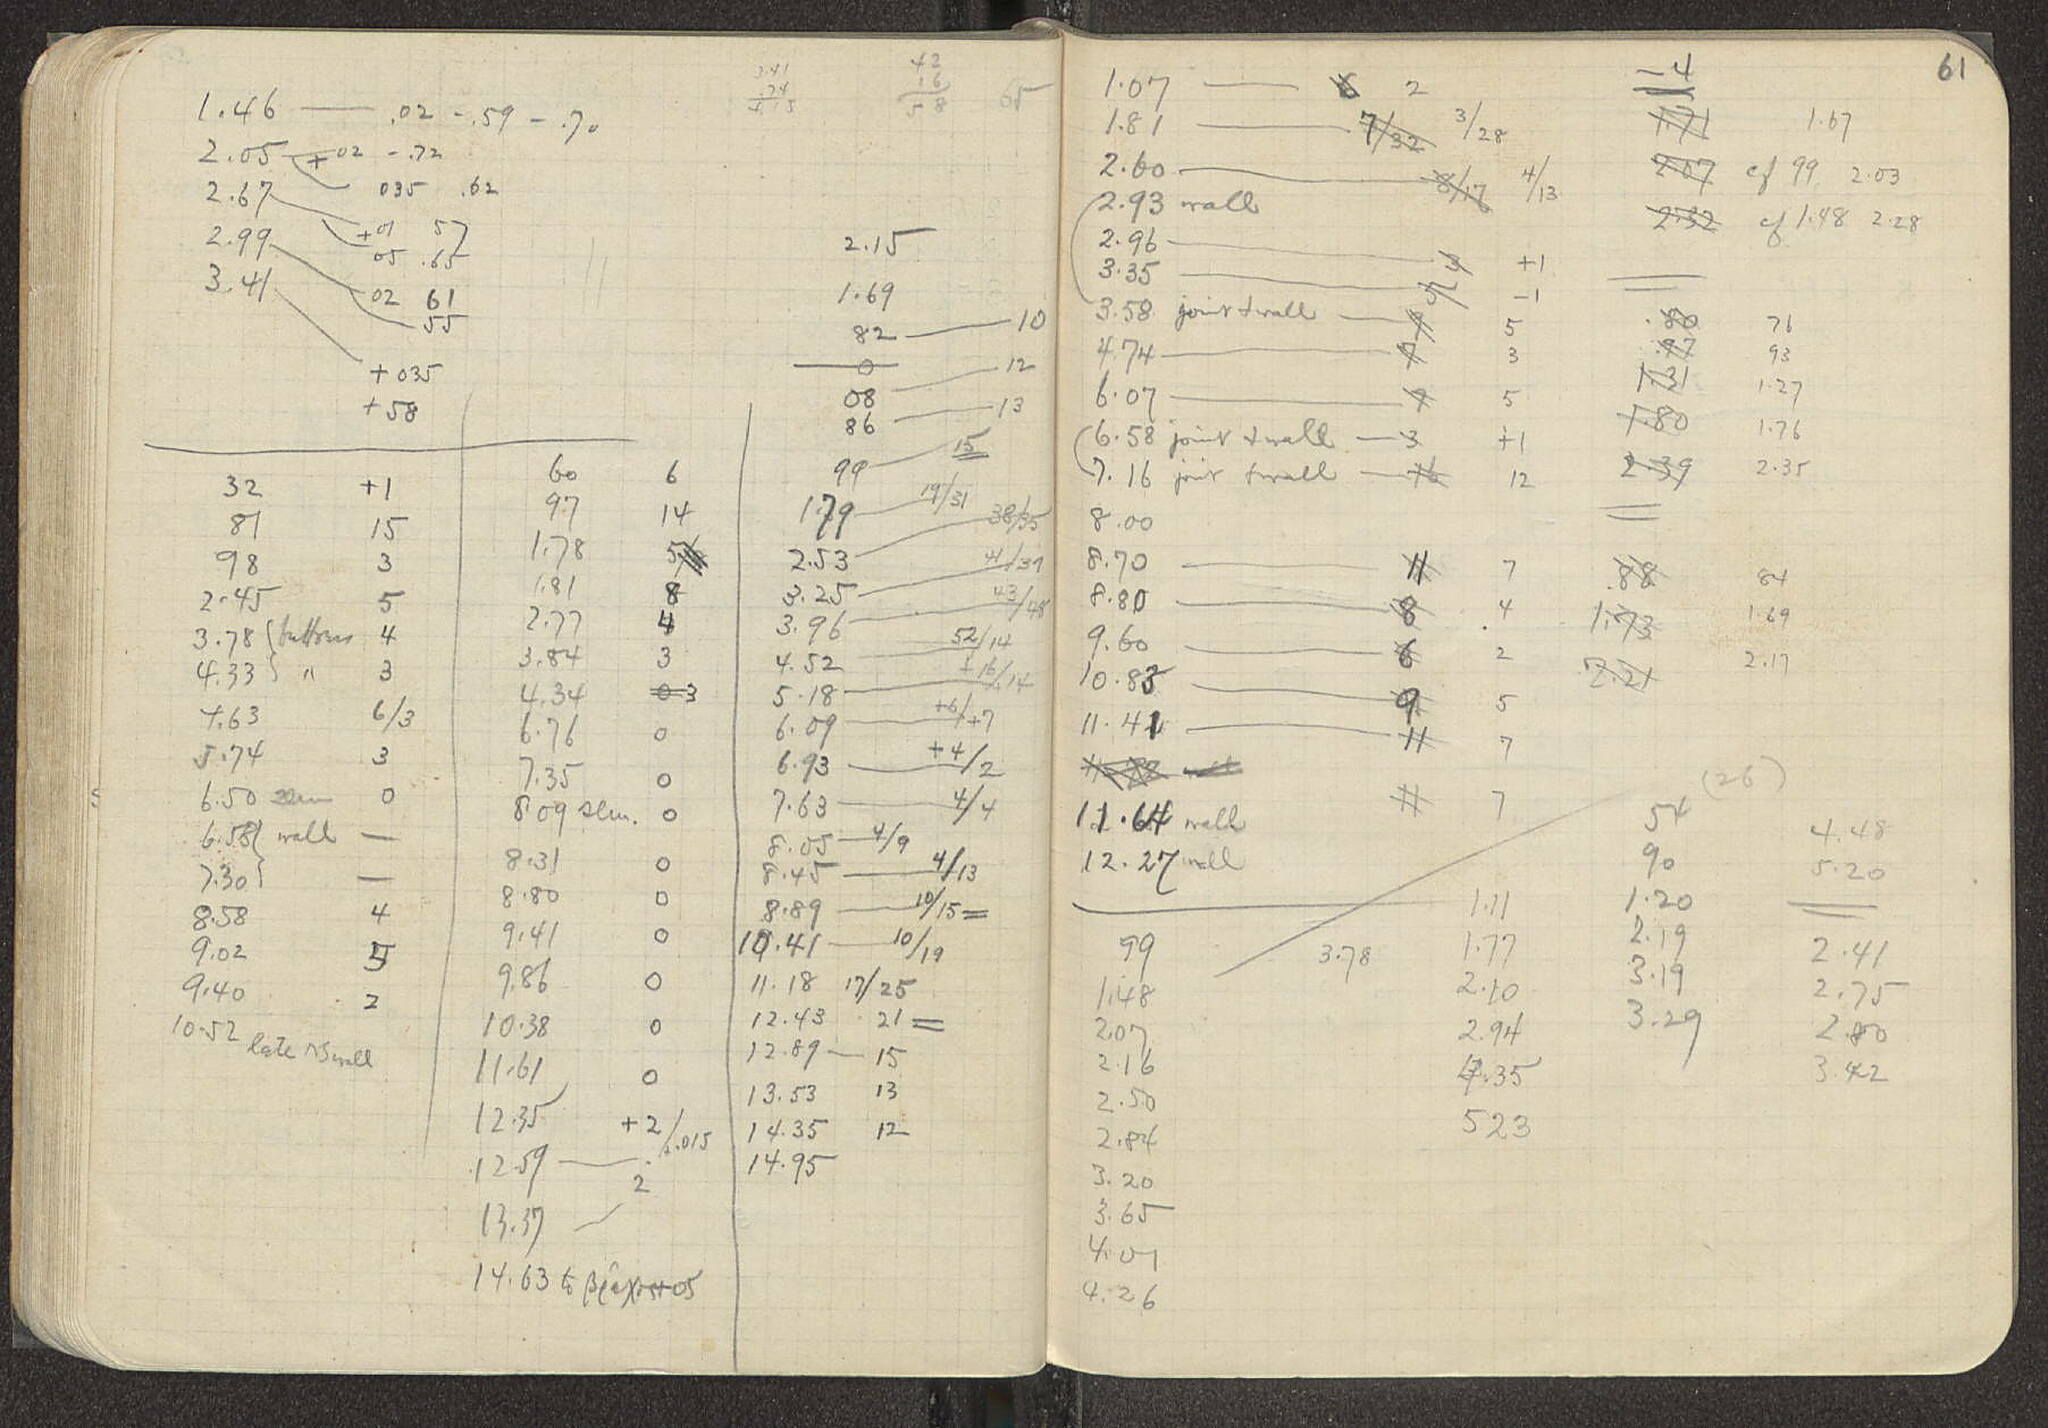 3.41
.74
4.15
42
16
58
65
1.46 — .02 - .59 - .70
2.05 +02 - .72
035 .62
2.67
+01 57
05 .65
2.99
02 61
55
3.41
+035
+58
2.15
1.69
82 — 10
0
08 — 12
86 — 13
99 — 15
1.79 — 19/31
2.53 — 38/35
3.25 — 41/39
3.96 — 43/48
4.52 — 52/14
5.18 — +16/14
6.09 — +6/+7
6.93 — +4/2
7.63 — 4/4
8.05 — 4/9
8.45 — 4/13
8.89 — 10/15 =
10.41 — 10/19
11.18 17/25
12.43 21 =
12.89 — 15
13.53 13
14.35 12
14.95
32 +1
81 15
98 3
2.45 5
3.78 buttress 4
4.33 " 3
4.63 6/3
5.74 3
6.50 0
6.58 wall —
7.30 —
8.58 4
9.02 5
9.40 2
10.52 late NS wall
60 6
97 14
1.78 5
1.81 8
2.77 4
3.84 3
4.34 0 3
6.76 0
7.35 0
8.09 0
8.31 0
8.80 0
9.41 0
9.86 0
10.38 0
11.61 0
12.35 +2/.015
12.59 — 2
13.37
14.63 to
61
1.07 — 6 2
1.81 — 7/32 3/28
2.60 — 8/17 4/13
2.93 wall
2.96 — 3 +1
3.35 — -1
3.58 joint + wall — 9 5
4.74 — 7 3
6.07 — 9 5
6.58 joint + wall — 3 +1
7.16 joint + wall — 16 12
8.00
8.70 — 11 7
8.80 — 8 4
9.60 — 6 2
10.83 — 9 5
11.41 — 11 7
11.64 wall 11 7
12.27 wall
-4
1.71 1.67
2.07 cf 99 2.03
2.32 cf 1.48 2.28
.80 76
.97 93
1.31 1.27
1.80 1.76
2.39 2.35
.88 84
1.73 1.69
2.21 2.17
(26)
99
1.48
2.07
2.16
2.50
2.84
3.20
3.65
4.01
4.26
3.78
1.11
1.77
2.10
2.94
4.35
523
54
90
1.20
2.19
3.19
3.29
4.48
5.20
2.41
2.75
2.80
3.42